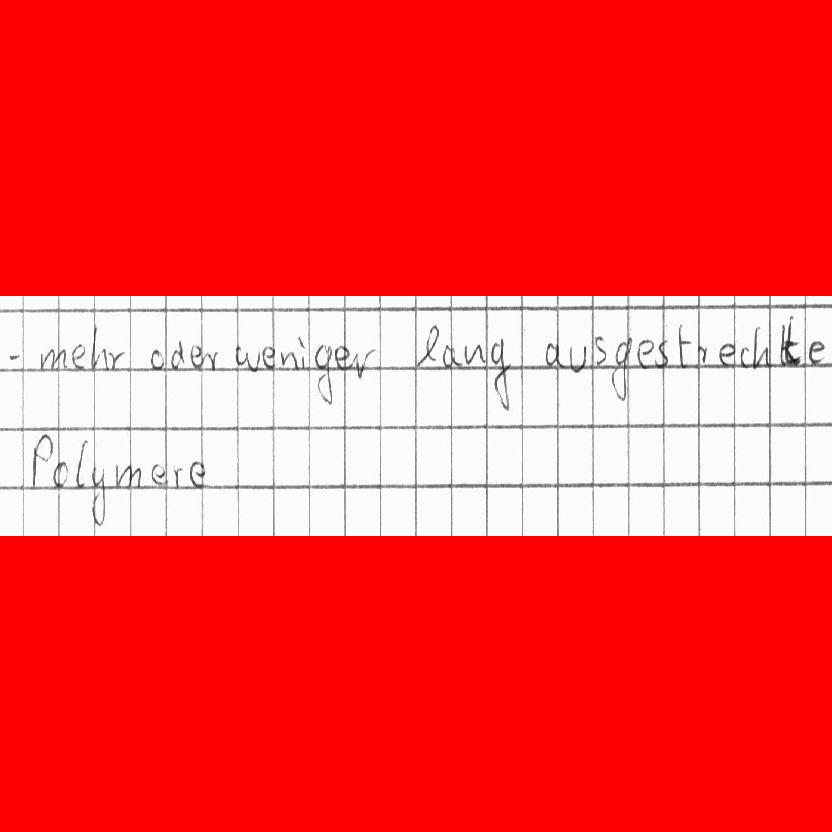 - mehr oder weniger lang ausgestrechkte
Polymere